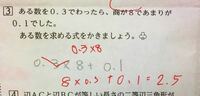 3 ある数を0.3でわったら、商が8であまりが
0.1でした。
ある数を求める式をかきましょう。
0.3×8
0.3×8+0.1
8×0.3+0.1=2.5
4 辺ACと辺BCが等しい長さの二等辺三角形が